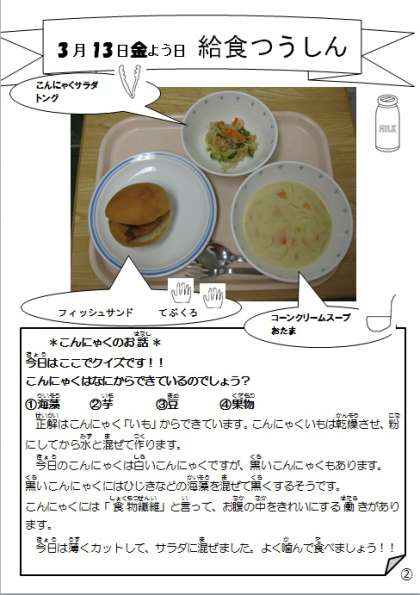 3月13日金よう日 給食つうしん
こんにゃくサラダ
トング
MILK
フィッシュサンド てぶくろ
コーンクリームスープ
おたま
＊こんにゃくのお話＊
今日はここでクイズです！！
こんにゃくはなにからできているのでしょう？
①海藻 ②芋 ③豆 ④果物
正解はこんにゃく「いも」からできています。こんにゃくいもは乾燥させ、粉
にしてから水と混ぜて作ります。
今日のこんにゃくは白いこんにゃくですが、黒いこんにゃくもあります。
黒いこんにゃくにはひじきなどの海藻を混ぜて黒くするそうです。
こんにゃくには「食物繊維」と言って、お腹の中をきれいにする働きがあり
ます。
今日は薄くカットして、サラダに混ぜました。よく噛んで食べましょう！！
②